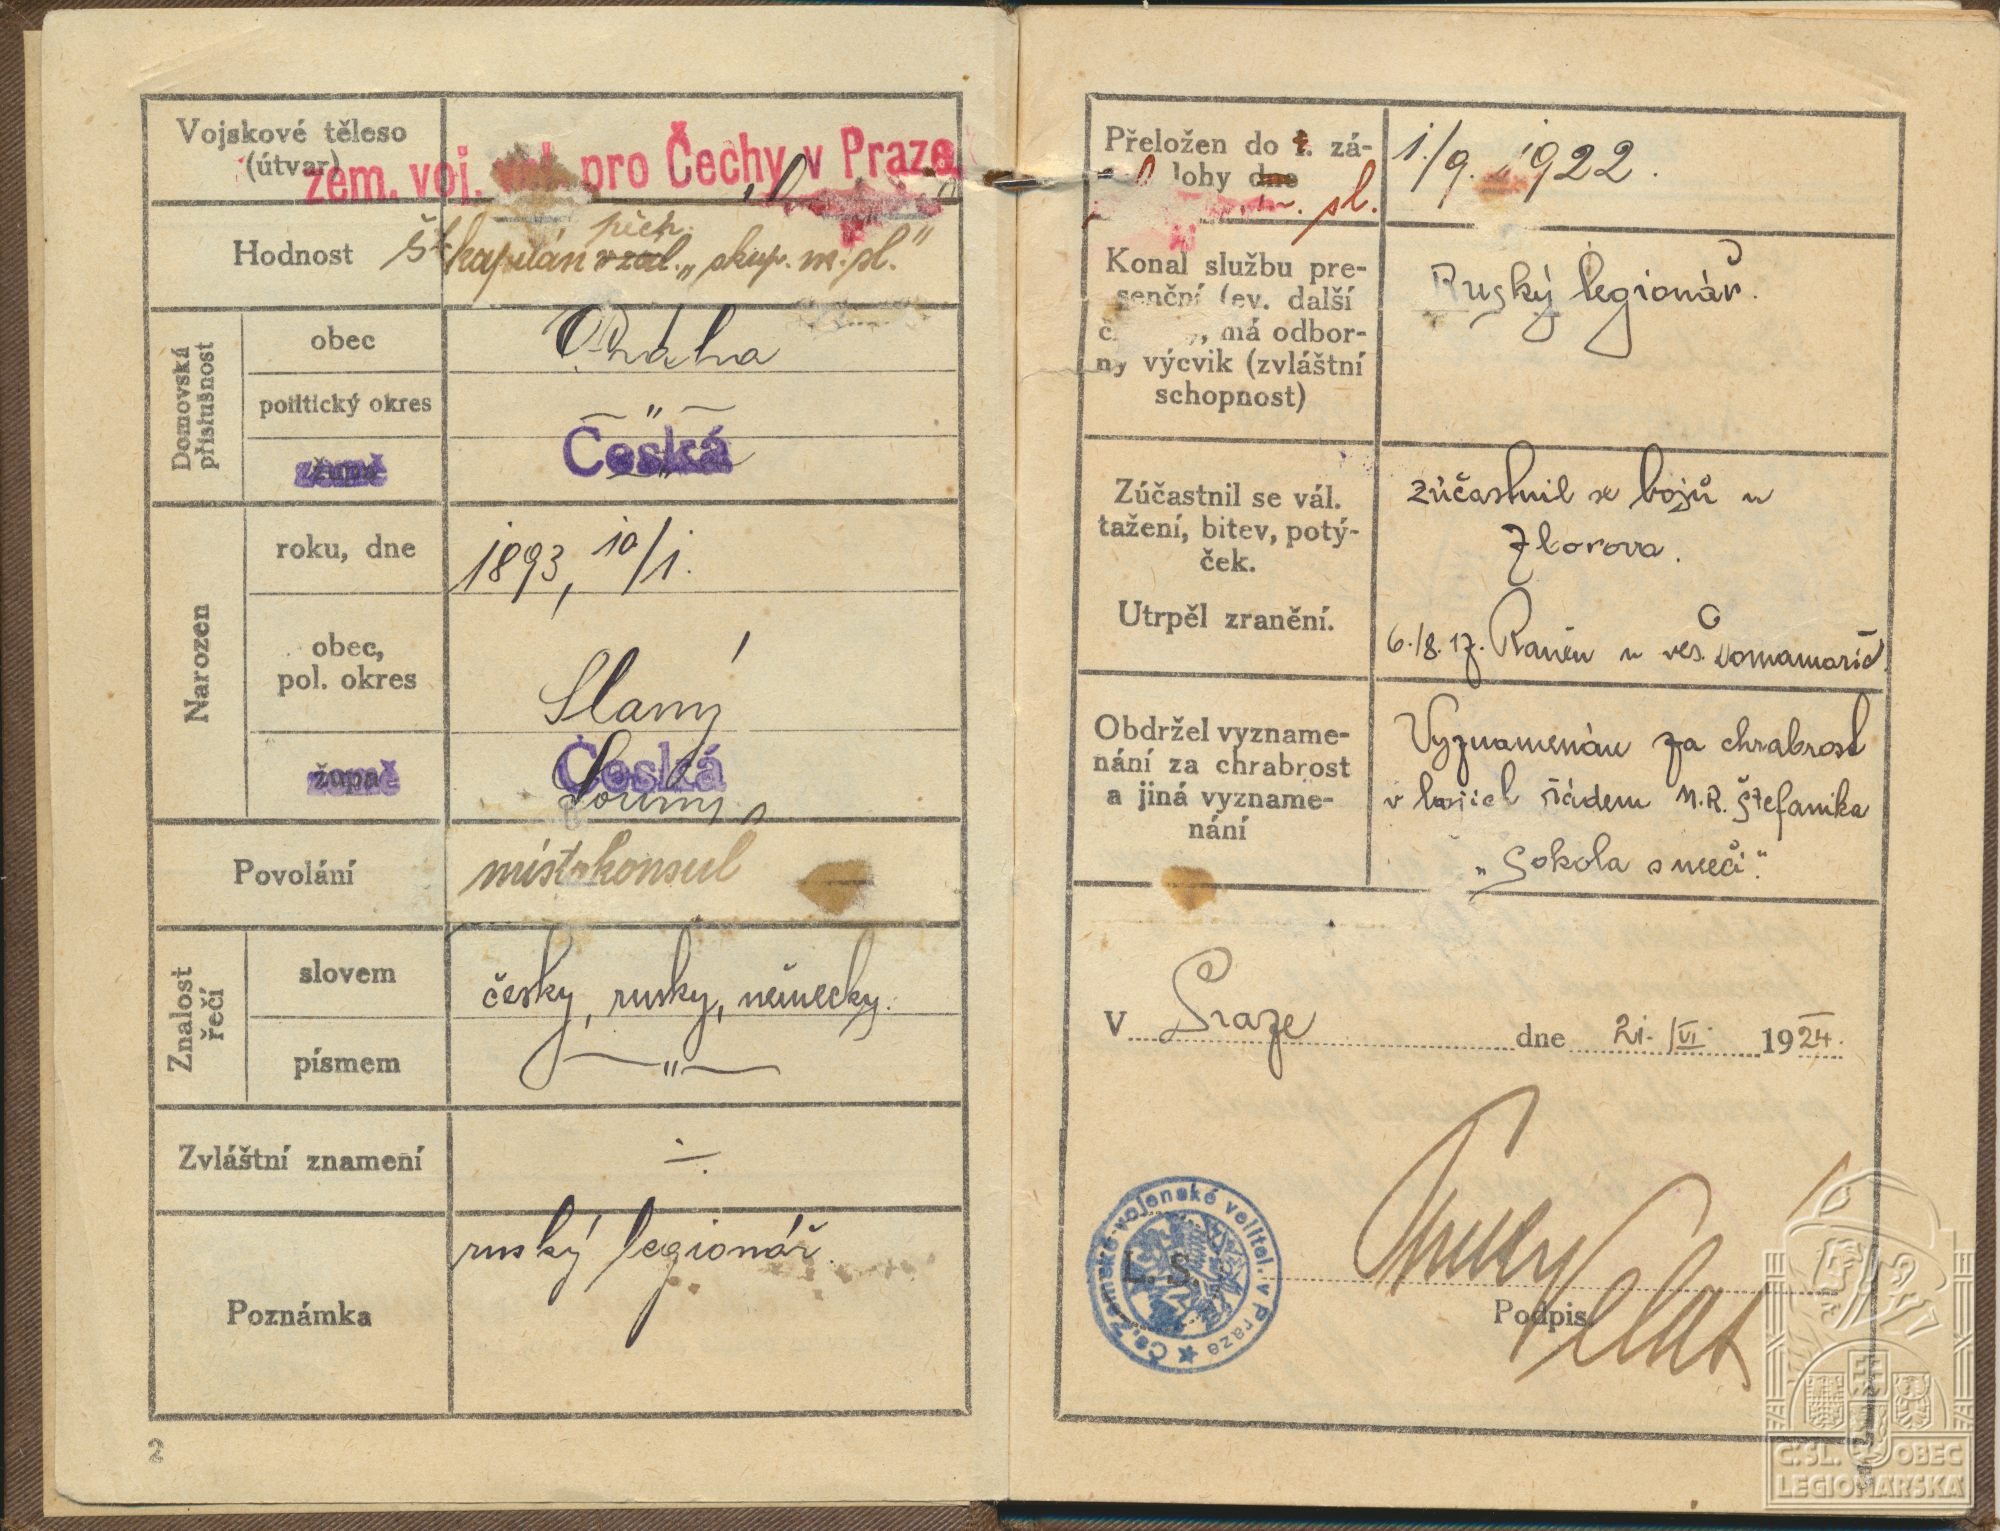 Vojskové těleso
(útvar)
zem. voj. vel. pro Čechy v Praze
Hodnost
Škapitán vzd. „skup. m. sl."
pěch.
Domovská
příslušnost
obec
Praha
politický okres
— „ —
župa
země
Česká
Narozen
roku, dne
1893, 10/1.
obec,
pol. okres
Slaný
župa
země
Česká
Louny
Povolání
místokonsul
Znalost
řečí
slovem
česky, rusky, německy.
písmem
— „ —
Zvláštní znamení
—.
Poznámka
ruský legionář.
2
Přeložen do 1. zá-
lohy dne
sl.
1./9. 1922.
Konal službu pre-
senční (ev. další
má odbor-
ný výcvik (zvláštní
schopnost)
Ruský legionář.
Zúčastnil se vál.
tažení, bitev, potý-
ček.
zúčastnil se bojů u
Zborova.
Utrpěl zranění.
6./8. 17. Raněn u ves.
Obdržel vyzname-
nání za chrabrost
a jiná vyzname-
nání
Vyznamenán za chrabrost
v bojích řádem M. R. Štefanika
„Sokola s meči".
V Praze dne 21. /VI. 1924.
L. S.
Čs. Zemské vojenské velitel. v Praze
Podpis.
Č. SL. OBEC
LEGIONÁŘSKÁ